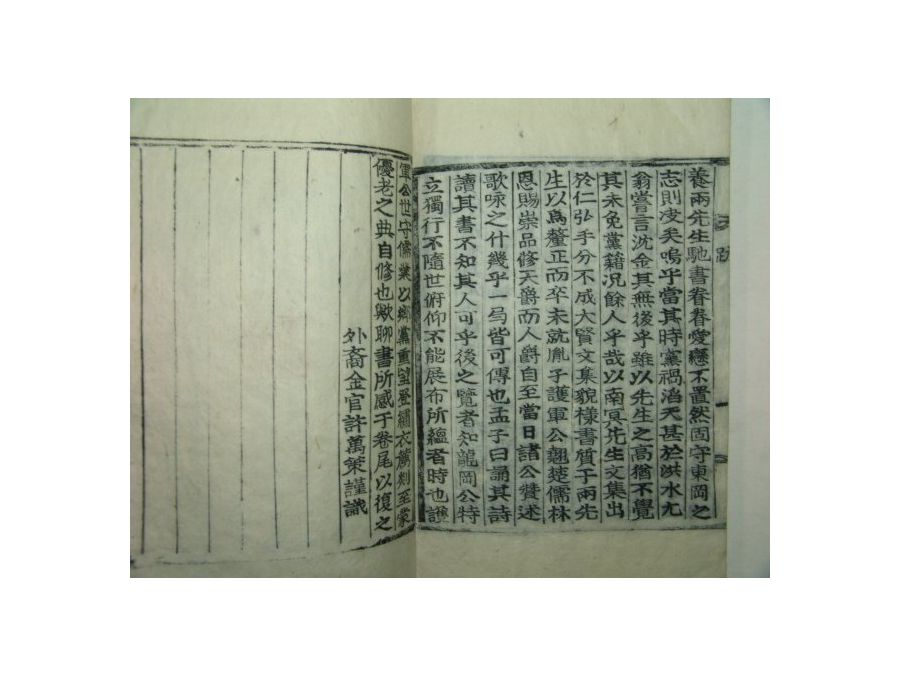 養兩先生馳書眷眷愛戀不置然固守東岡之
志則決矣嗚乎當其時黨禍滔天甚於洪水尤
翁嘗言沈金其無後乎雖以先生之高猶不覺
其未免黨籍況餘人乎哉以南冥先生文集出
於仁弘手分不成大賢文集貌樣書質于兩先
生以爲釐正而卒未就胤子護軍公翹楚儒林
恩賜崇品修天爵而人爵自至當日諸公贊述
歌咏之什幾乎一局皆可傳也孟子曰誦其詩
讀其書不知其人可乎後之覽者知龍岡公特
立獨行不隨世俯仰不能展布所蘊者時也護
軍公世守儒業以鄉黨重望登繡衣薦剡至蒙
優老之典自修也歟聊書所感于卷尾以復之
外裔金官許萬策謹識
跋